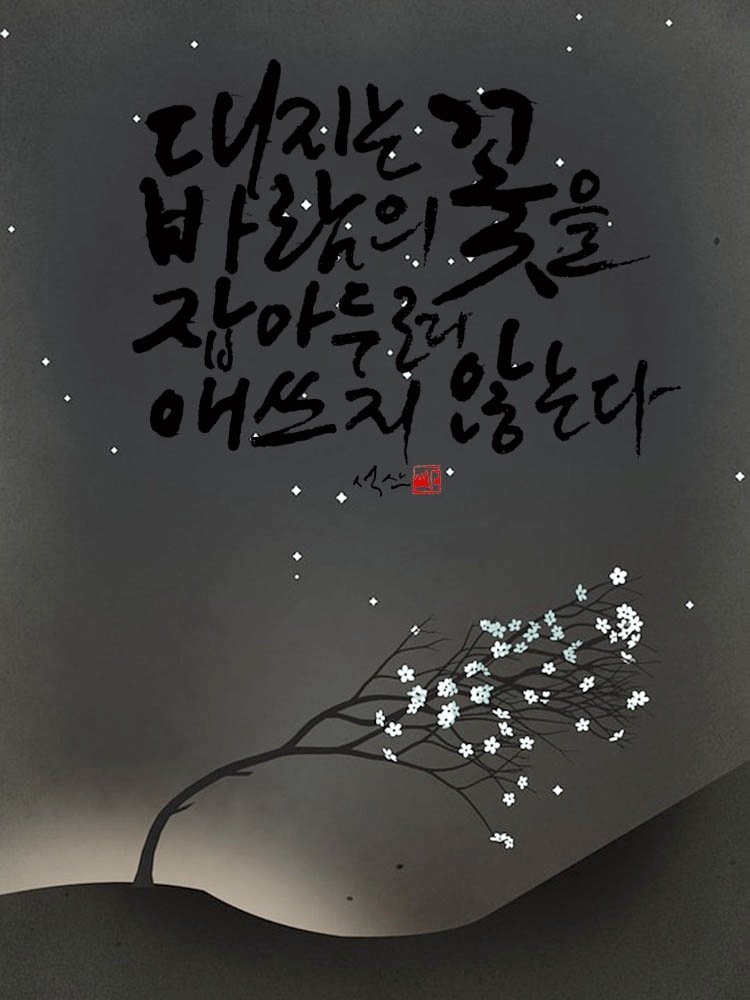 대지는 꽃을
바람의
잡아두려
애쓰지 않는다
석산